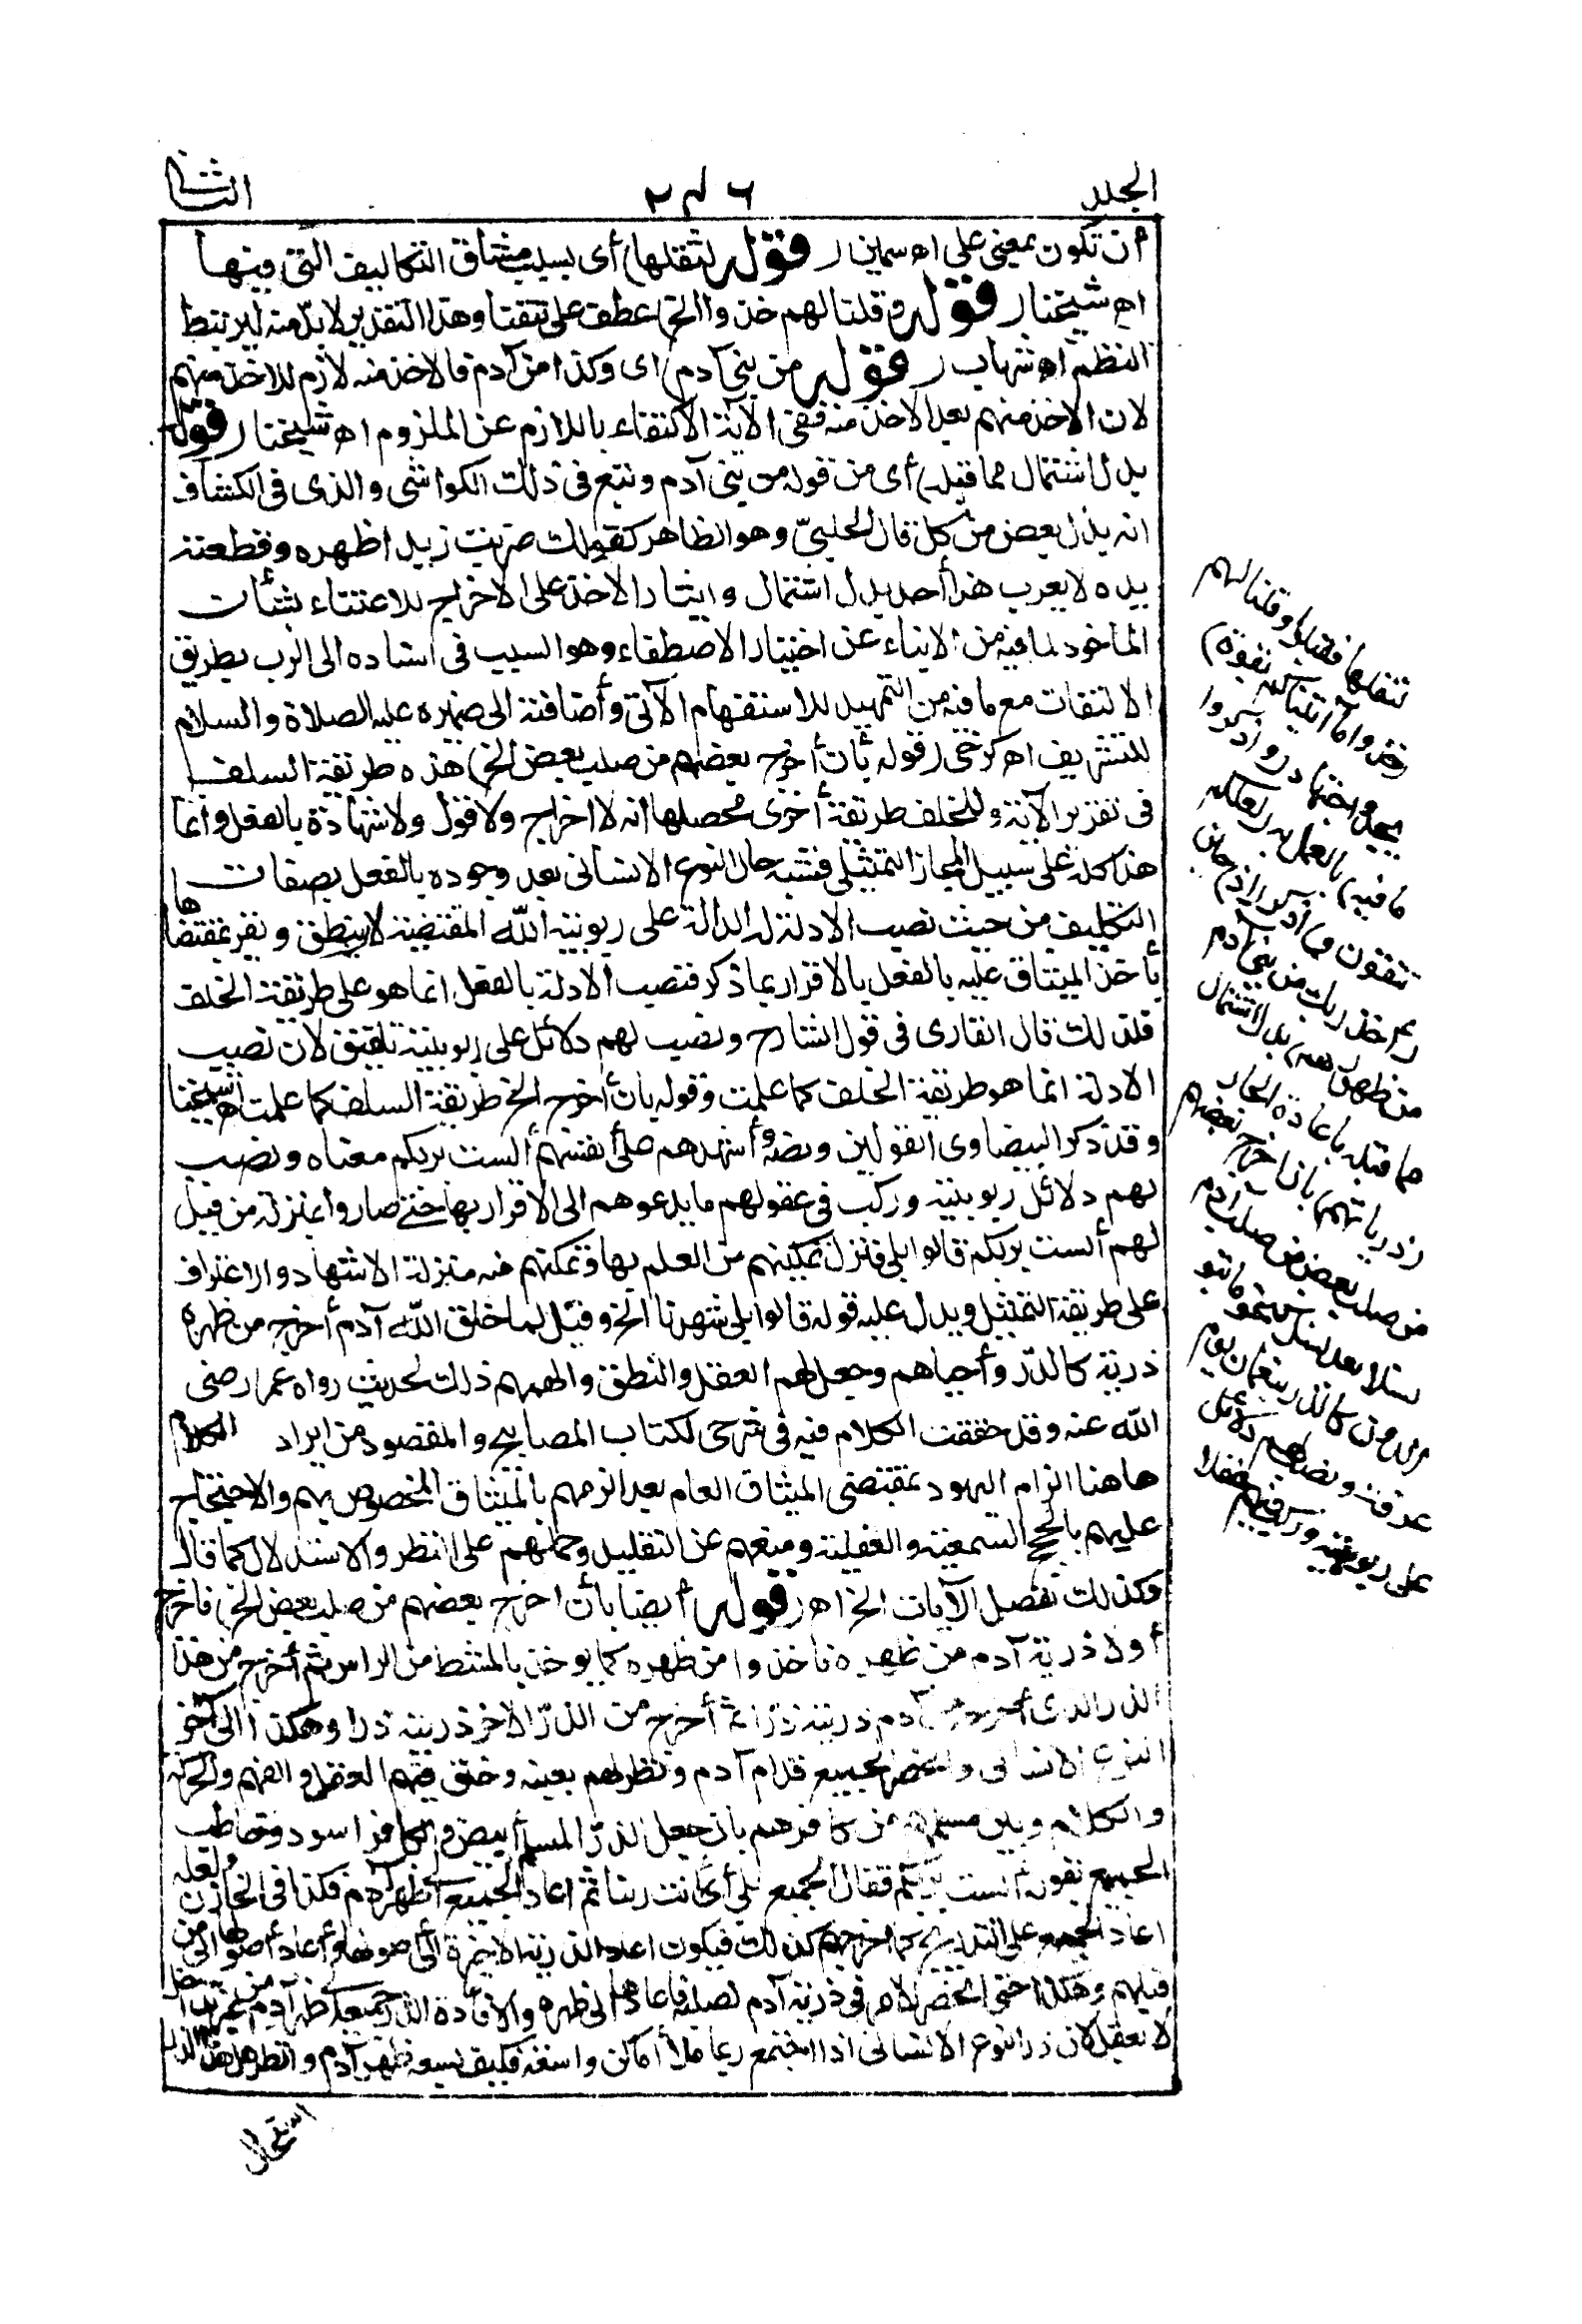 الجلد ٢٨٦ الثانى
أن تكون بمعنى على اه سمين (قوله لثقلها) أى بسبب مشاق التكاليف التى فيها
اه شيخنا (قوله وقلنا لهم خذوا الخ) عطف على نتقنا وهذا التقدير لا بدّ منه ليرتبط
النظم اه شهاب (قوله من بنى آدم) اى وكذا من آدم فالاخذ منه لازم للاخذ منهم
لان الاخذ منهم بعد الاخذ منه ففى الآية الاكتفاء باللازم عن الملزوم اه شيخنا (قوله
بدل اشتمال مما قبله) أى من قوله من بنى آدم وتبع فى ذلك الكواشى والذى فى الكشاف
انه بدل بعض من كل قال الحلبىّ وهو الظاهر كقولك ضربت زيدا ظهره وقطعته
يده لا يعرب هذا أحد بدل اشتمال وايثار الاخذ على الاخراج للاعتناء بشأن
المأخوذ لما فيه من الانباء عن اختيار الاصطفاء وهو السبب فى اسناده الى الرب بطريق
الالتفات مع ما فيه من التمهيد للاستفهام الآتى وأضافته الى ضميره عليه الصلاة والسلام
للتشريف اه كرخى (قوله بأن أخرج بعضهم من صلب بعض الخ) هذه طريقة السلف
فى تقرير الآية وللخلف طريقة أخرى محصلها انه لا اخراج ولا قول ولا شهادة بالفعل وانما
هذا كله على سبيل المجاز التمثيلى فشبه حال النوع الانسانى بعد وجوده بالفعل بصفات
التكليف من حيث نصب الادلة له الدالة على ربوبية الله المقتضية لان ينطق ويقر بمقتضاها
بأخذ الميثاق عليه بالفعل بالاقرار بما ذكر فنصب الادلة بالفعل انما هو على طريقة الخلف
فلذلك قال القارى فى قول الشارح ونصب لهم دلائل على ربوبيته تلفيق لان نصب
الادلة انما هو طريقة الخلف كما علمت وقوله بأن أخرج الخ طريقة السلف كما علمت اه شيخنا
وقد ذكر البيضاوى القولين ونصه وأشهدهم على أنفسهم ألست بربكم معناه ونصب
لهم دلائل ربوبيته وركب فى عقولهم ما يدعوهم الى الاقرار بها حتى صاروا بمنزلة من قيل
لهم ألست بربكم قالوا بلى فنزل تمكينهم من العلم بها وتمكنهم منه منزلة الاشهاد والاعتراف
على طريقة التمثيل ويدل عليه قوله قالوا بلى شهدنا الخ وقيل لما خلق الله آدم أخرج من ظهره
ذرية كالذرّ وأحياهم وجعل لهم العقل والنطق والهمهم ذلك لحديث رواه عمر رضى
الله عنه وقد حققت الكلام فيه فى شرحى لكتاب المصابيح والمقصود من ايراد الكلام
هاهنا الزام اليهود بمقتضى الميثاق العام بعد الزمهم بالميثاق المخصوص بهم والاحتجاج
عليهم بالحجج السمعية والعقلية ومنعهم عن التقليد وحملهم على النظر والاستدلال كما قال
وكذلك نفصل الآيات الخ اه (قوله أيضا بأن اخرج بعضهم من صلب بعض الخ) فاخرج
أولا ذرية آدم من ظهره فاخذوا من ظهره كما يوخذ بالمشط من الراس ثم أخرج من هذا
الذر الذى أخرجه من آدم ذريته ذرّا ثم أخرج من الذرّ الآخر ذريته ذرا وهكذا الى آخر
النوع الانسانى وانحصر الجميع قدام آدم ونظر لهم بعينه وخلق فيهم العقل والفهم والحركة
والكلام وبين مسلمهم من كافرهم بأن جعل الذرّ المسلم أبيض والكافر اسود وخاطب
الجميع بقوله ألست بربكم فقال الجميع بلى أى أنت ربنا ثم اعاد الجميع الى ظهر آدم فكذا فى الخازن ولعله
اعاد الجميع على التدريج كما اخرجهم كذلك فيكون اعاد الذرية الاخيرة الى أصولها وأعاد أصولها الى من
قبلهم وهكذا حتى انحصر الامر فى ذرية آدم لصلبه فاعادها الى ظهره والا فاعادة الذر جميعه الى ظهر آدم
لا يعقل لان ذر النوع الانسانى اذا اجتمع ربما ملأ أماكن واسعة فكيف يسعه ظهر آدم وانظر هل هذا الذر
استحال
لثقلها فقبلوا وقلنا لهم
(خذوا ما آتيناكم بقوة)
بجد واجتهاد (واذكروا
ما فيه) بالعمل به (لعلكم
تتقون و) اذكر (اذ) حين
(أخذ ربك من بنى آدم
من ظهورهم) بدل اشتمال
مما قبله باعادة الجار
(ذرياتهم) بان اخرج بعضهم
من صلب بعض من صلب آدم
نسلا بعد نسل كنحو ما يتو
الدون كالذر بنعمان يوم
عرفة ونصب لهم دلائل
على ربوبيته وركب فيهم عقلا